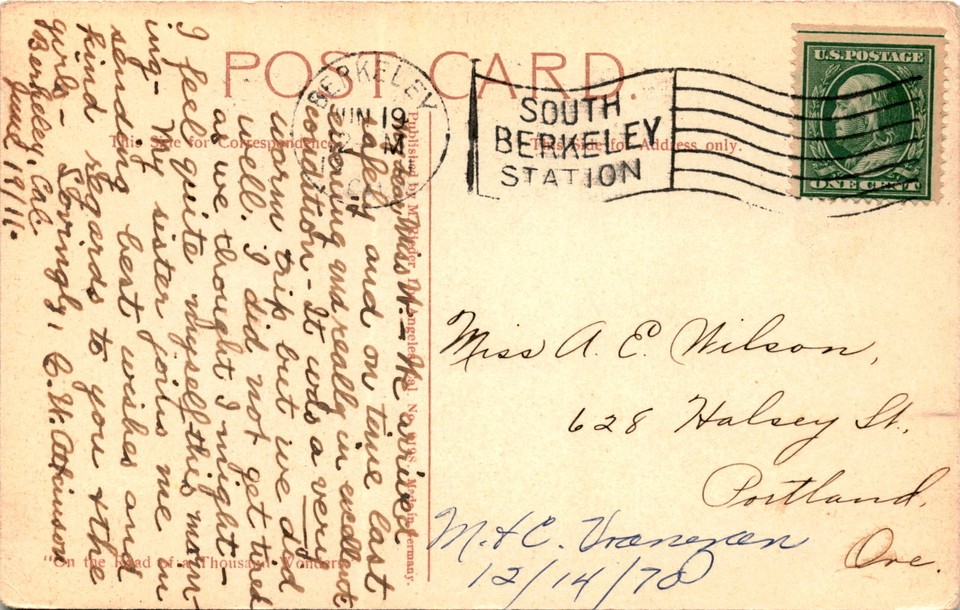 POST CARD.
BERKELEY
JUN 19
CAL
SOUTH
BERKELEY
STATION
U.S. POSTAGE
ONE CENT
This Side for Correspondence
This Side for Address only.
My dear Miss W. – We arrived
safely and on time last
evening and really in excellent
condition – It was a very
warm trip but we did
well. I did not get tired
as we thought I might –
I feel quite myself this morn-
ing – My sister joins me in
sending best wishes and
kind regards to you & the
girls – Lovingly, C. W. Atkinson
Berkeley, Cal.
June 19/11.
Published by M. Rieder, Los Angeles, Cal. No. Made in Germany.
Miss A. E. Wilson,
628 Halsey St.,
Portland,
Ore.
M. & C.
12/14/78
"On the Road of a Thousand Wonders"